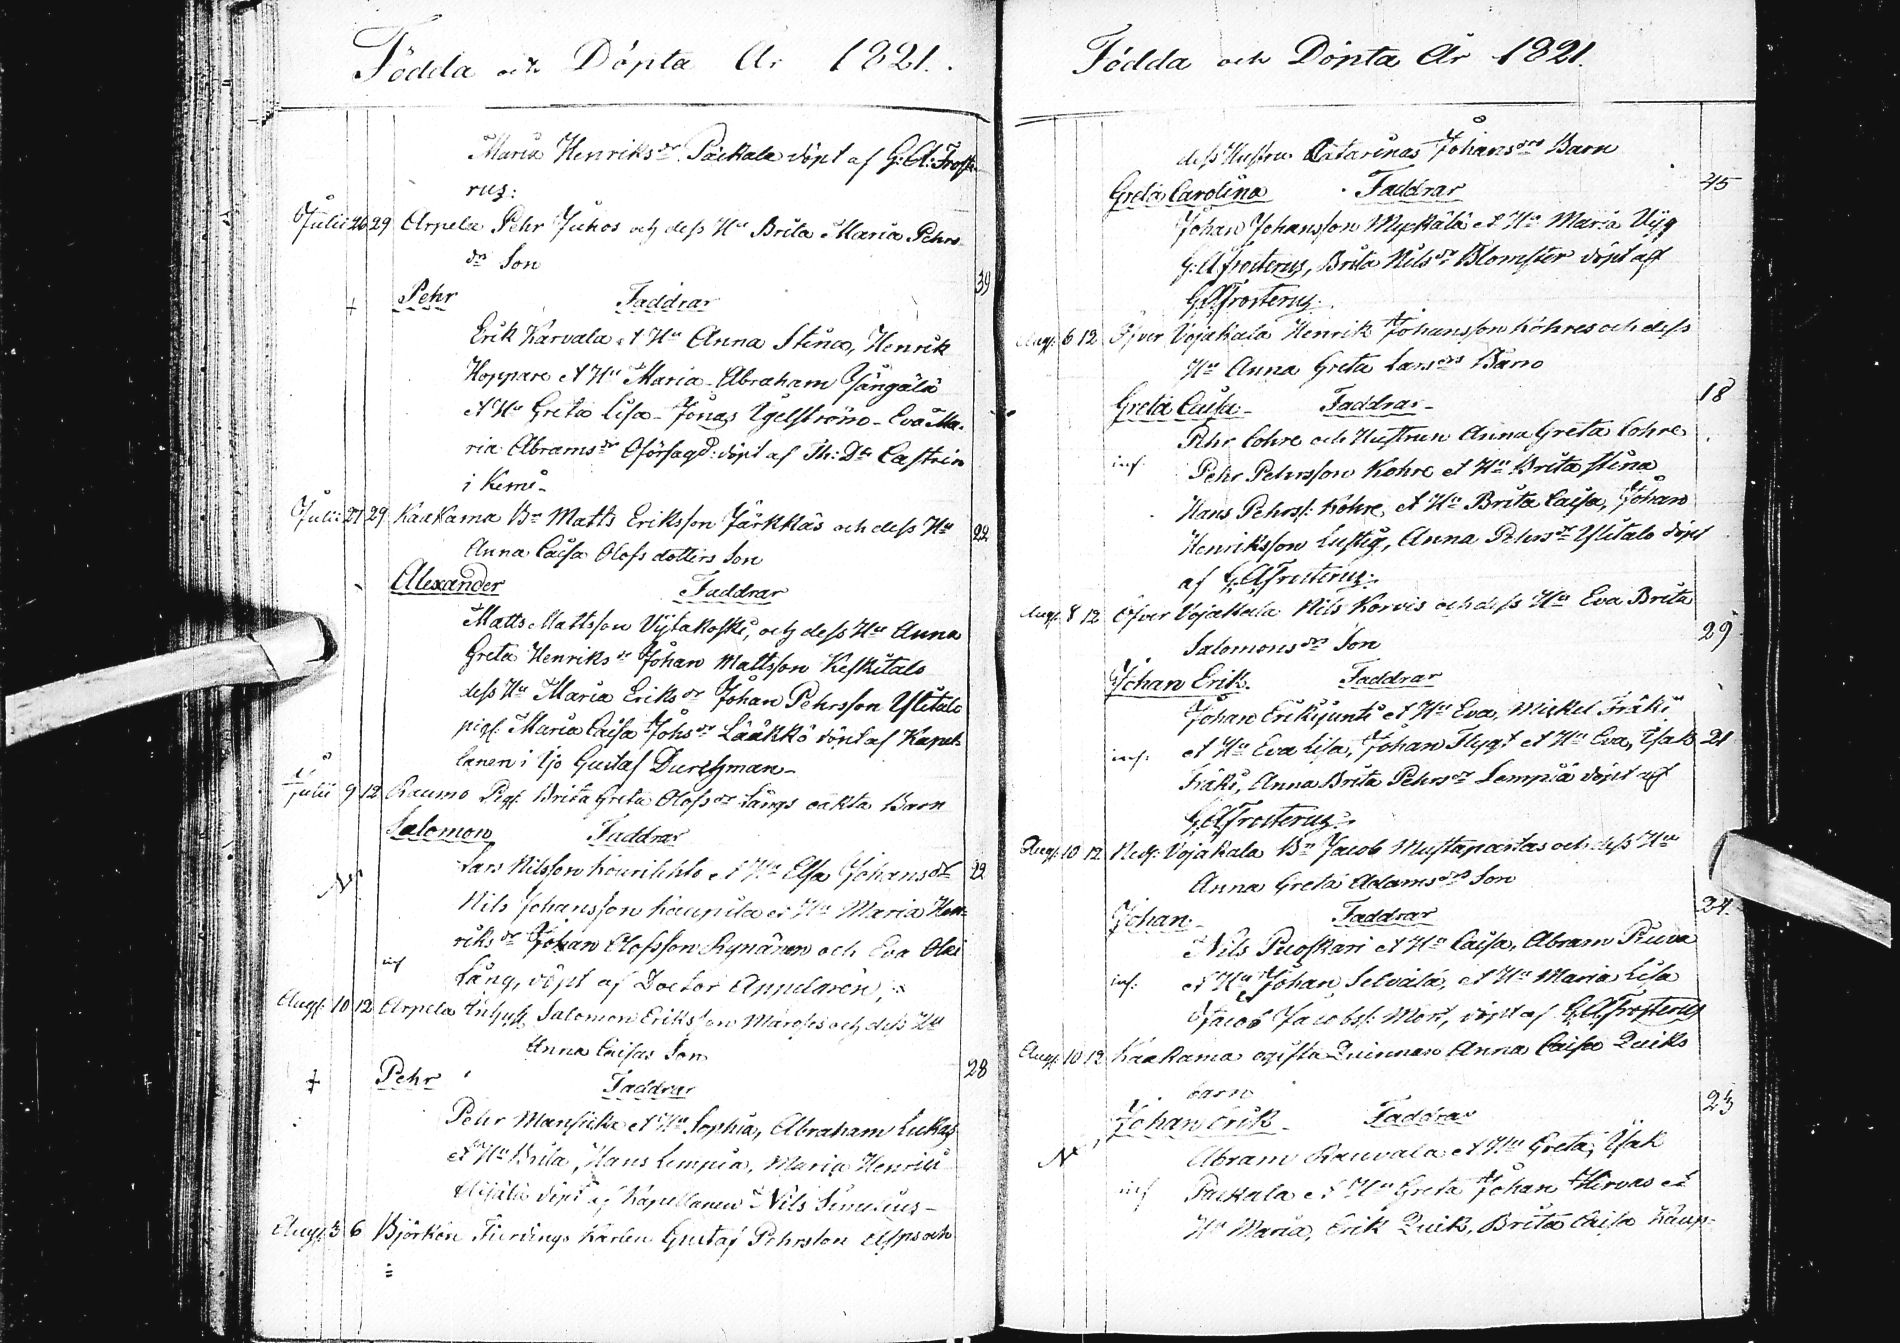 Födda och Döpta År 1821.
Maria Henriksdr Päckala döpt af G: A: Froste-
rus:
Julii 26 29 Arpela Pehr Juhos och dess Hu Brita Maria Pehrs
dr Son
39
Pehr Faddrar
Erik Karvala et Hu Anna Stina, Henrik
Hoppare et Hu Maria - Abraham Jängälä
et Hu Greta Lisa - Jonas Ugelström - Eva Ma-
ria Abramsdr döpt af Th: Dr Castrén
i Kemi -
Julii 27 29 Kaakama Bn Matts Eriksson Järkkäs och dess Hu 22
Anna Caisa Olofs dotters Son
Alexander Faddrar
Matts Mattsson Vijtakoski, och dess Hu Anna
Greta Henriksdr Johan Mattsson Keskitalo
dess Hu Maria Eriksdr Johan Pehrsson Ylitalo
pig: Maria Caisa Johsdr Lääkkö döpt af Kapel-
lanen i Ijo Gustaf Durchman -
Julii 9 12 Raumo Pig: Brita Greta Olofsdr Längs oäkta Barn
Salomon Faddrar
Lars Nilsson et Hu Elsa Johansdr 22
Nils Johansson Kaupila et Hu Maria Hen-
riksdr Johan Olofsson Rynänen och Eva
inf Lång, döpt af Doctor
Aug: 10 12 Arpela Inhys Salomon Eriksson och dess Hu
Anna Caisas Son
28
Pehr Faddrar
Pehr Mansikka et Hu Sophia, Abraham Lukas
et Hu Brita, Hans Lempiä, Maria Henrici
döpt af Kapellanen Nils Simelius -
Aug: 3 6 Björkön Fierdings Karlen Gustaf Pehrsson Asps och
Födda och Döpta År 1821.
dess Hustru Catarinas Johansdrs Barn
Greta Carolina Faddrar 45
Johan Johansson Myckälä et Hu Maria
G: A Frosterus, Brita Nilsdr Blomster döpt af
G A Frosterus.
Aug: 6 12 Öfver Vojakala Henrik Johansson Kohres och dess
Hu Anna Greta Larsdrs Barn
Greta Caisa - Faddrar - 18
Pehr Cohre och Hustrun Anna Greta Cohre
inf: Pehr Pehrsson Kohre et Hu Brita Stina
Hans Pehrs: Kohre et Hu Brita Caisa, Johan
Henriksson Lustig, Anna Pehrsdr Ylitalo döpt
af G A Frosterus:
Aug: 8 12 Öfver Vojakala Nils Korvis och dess Hu Eva Brita
29
Salomonsdrs Son
Johan Erik. Faddrar
Johan Erikijunti et Hu Eva, Mickel Fräki
inf: et Hu Eva Lisa, Johan Flygt et Hu Eva, Isak 21
Fräki, Anna Brita Pehrsdr Lempiä döpt af
G A Frosterus:
Aug: 10 12 Ned: Vojakala Bn Jacob Mustapartas och dess Hu
Anna Greta Adamsdrs Son
24.
Johan. Faddrar
Nils Puoskari et Hu Caisa, Abram Ruva
inf: et Hu Johan Selvälä, et Hu Maria Lisa
Jacob Jacobss: Mort, döpt af G A Frosterus
Aug: 10 12 Kaakama ogifta Quinnan Anna Caisa Quiks
barn
23
Johan Erik - Faddrar
Abram Rauvala et Hu Greta, Isak
inf Päckala et Hu Greta Johan Hirvas et
Hu Maria, Erik Quik, Brita Caisa Kaup-